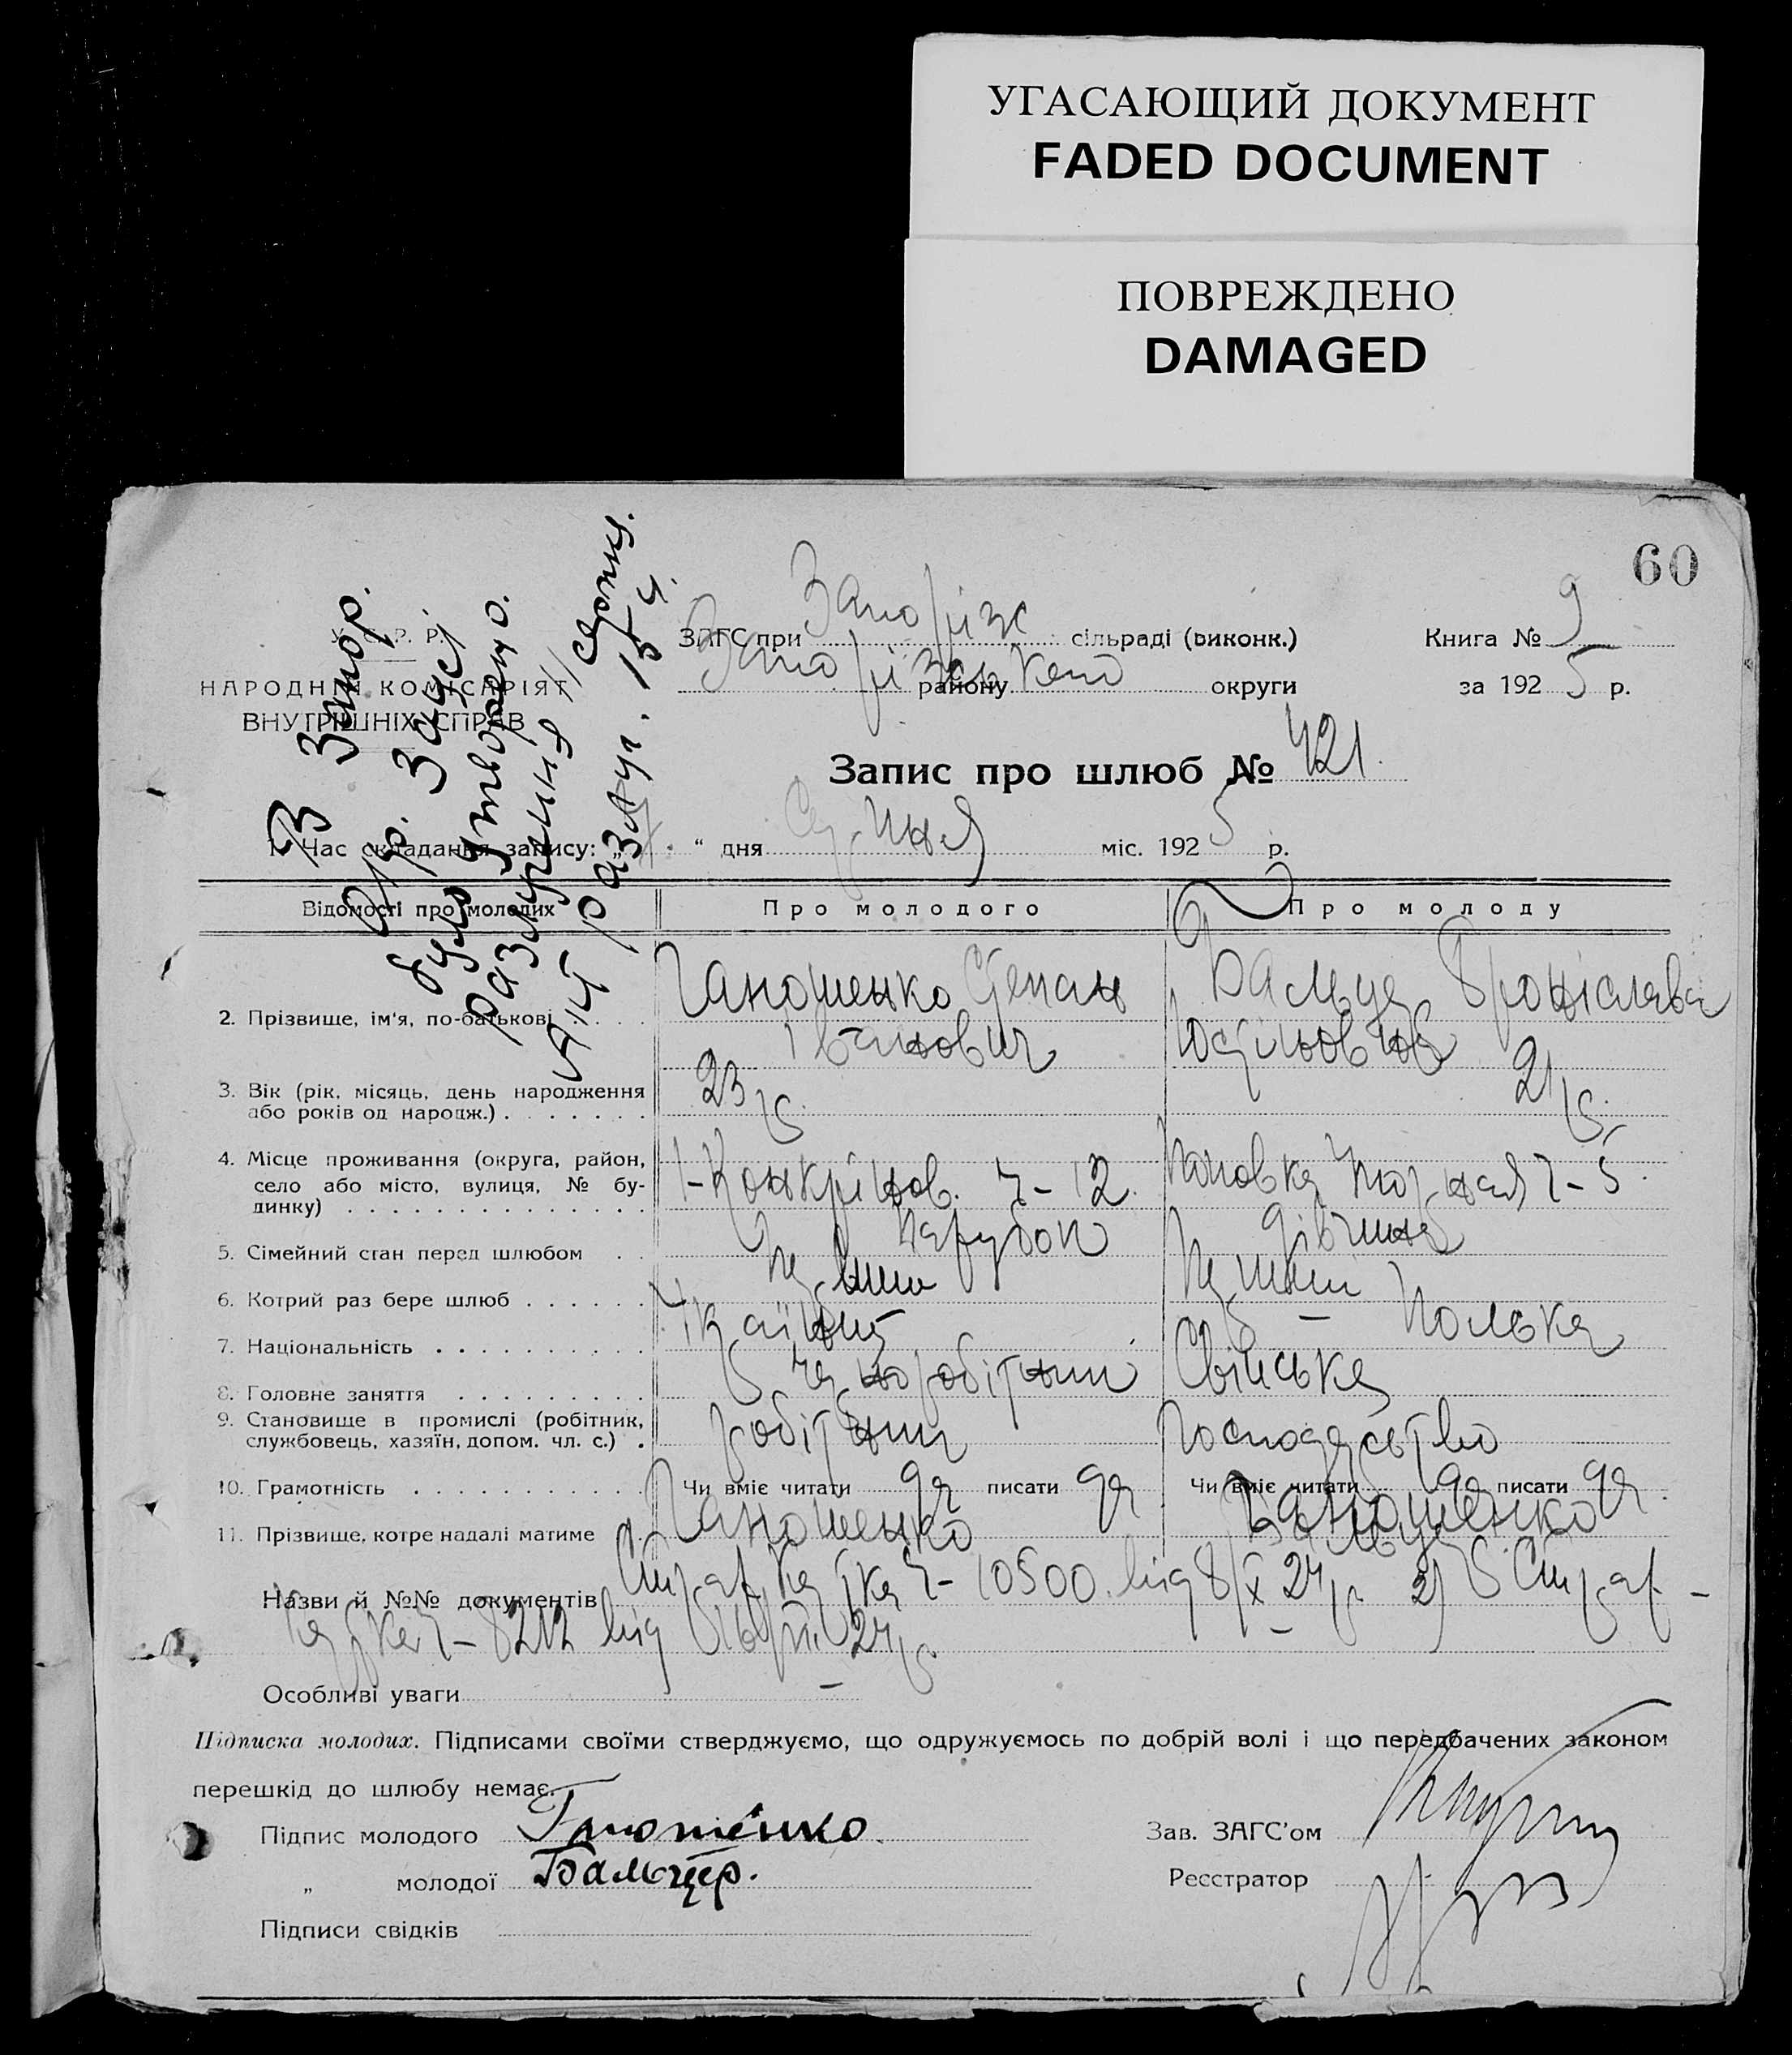 УГАСАЮЩИЙ ДОКУМЕНТ
FADED DOCUMENT
ПОВРЕЖДЕНО
DAMAGED
60
У. С. Р. Р.
НАРОДНІЙ КОМІСАРІЯТ
ВНУТРІШНІХ СПРАВ
В Запор.
О/р. Загсі
було утворено
разлучення
Акт разлуч. 15 ч.
ЗАГС при Запоріж сільраді (виконк.)
Запорізького району округи
Книга № 9
за 1925 р.
Запис про шлюб № 421.
1. Час складання запису: „ “ дня Серпня міс. 1925 р.
Відомості про молодих Про молодого Про молоду
2. Прізвище, ім'я, по-батькові Ганошенко Степан Іванович
Бальцер Броніслава
3. Вік (рік, місяць, день народження або років од народж.) 23 р. 21 р.
4. Місце проживання (округа, район, село або місто, вулиця, № будинку)
5. Сімейний стан перед шлюбом Парубок Дівчина
6. Котрий раз бере шлюб Перший Перший
7. Національність Українець Полька
8. Головне заняття Черноробітник Свійське
9. Становище в промислі (робітник, службовець, хазяїн, допом. чл. с.) робітник господарство
10. Грамотність Чи вміє читати да писати да Чи вміє читати да писати да
11. Прізвище, котре надалі матиме Ганошенко Ганошенко
Назви й №№ документів Страх. Картка ч- 10500 від 8/X 24 р. 2) Страх-
картка ч- 8212 від 24 р.
Особливі уваги
Підписка молодих. Підписами своїми стверджуємо, що одружуємось по добрій волі і що передбачених законом
перешкід до шлюбу немає.
Підпис молодого Ганошенко
„ молодої Бальцер.
Підписи свідків
Зав. ЗАГС'ом
Реєстратор